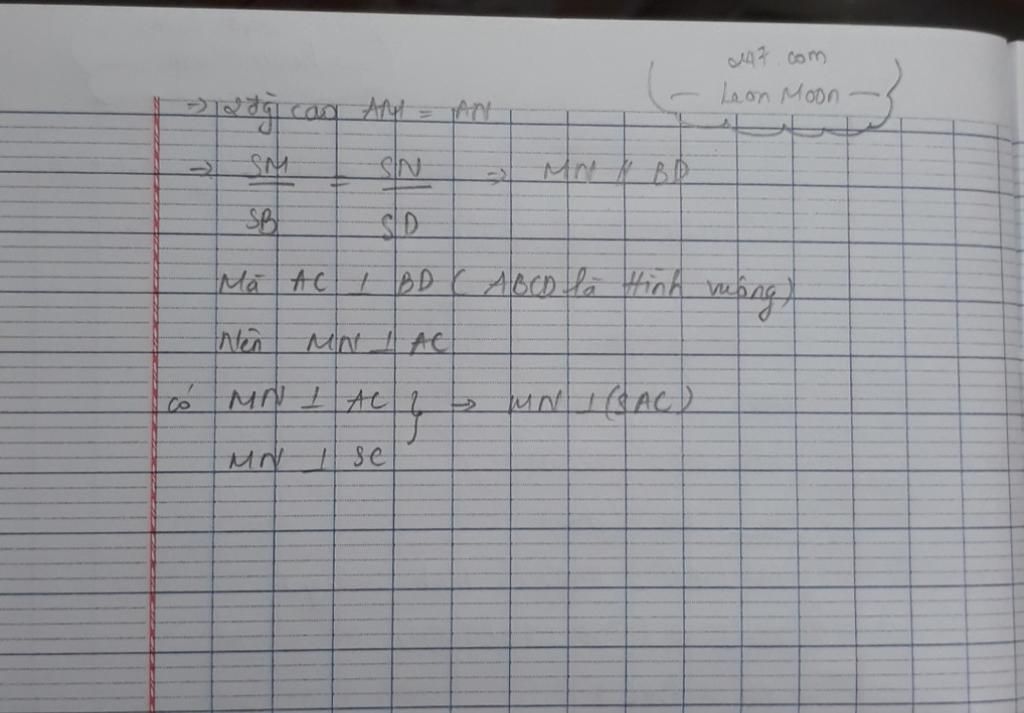 247.com
— Leon Moon —
→ 2 đg cao AM = AN
→ SM/SB = SN/SD → MN // BD
Mà AC ⊥ BD ( ABCD là Hình vuông)
Nên MN ⊥ AC
có MN ⊥ AC } → MN ⊥ (SAC)
MN ⊥ SC